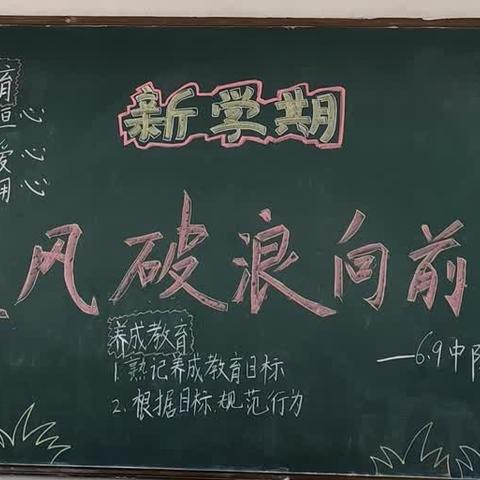 新学期
育
恒心
爱心
用心
风破浪向前
养成教育
1.熟记养成教育目标
2.根据目标,规范行为
—6.9中队